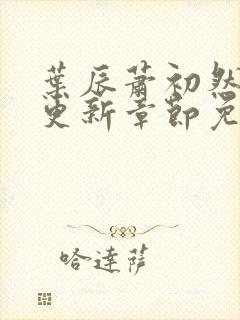 葉辰蕭初然
更新章節免
哈達薩